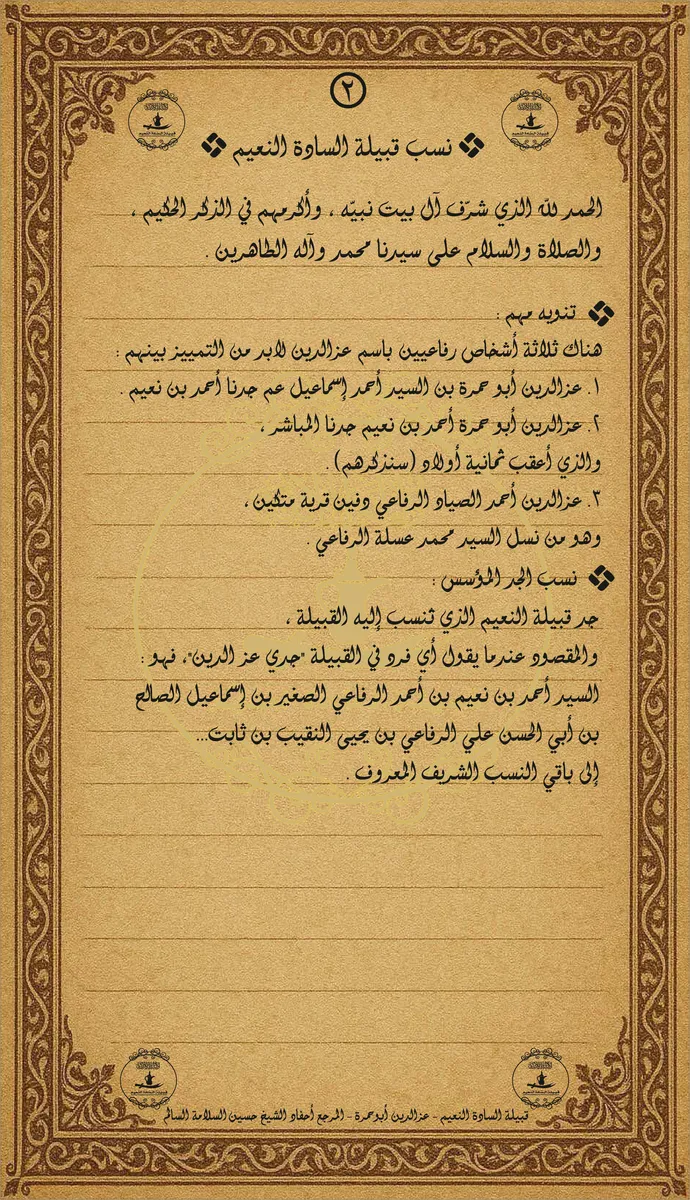 ٢
نسب قبيلة السادة النعيم
الحمد لله الذي شرّف آل بيت نبيّه ، وأكرمهم في الذكر الحكيم ،
والصلاة والسلام على سيدنا محمد وآله الطاهرين .
تنويه مهم :
هناك ثلاثة أشخاص رفاعيين باسم عزالدين لابد من التمييز بينهم :
١. عزالدين أبو حمرة بن السيد أحمد إسماعيل عم جدنا أحمد بن نعيم .
٢. عزالدين أبو حمرة أحمد بن نعيم جدنا المباشر ،
والذي أعقب ثمانية أولاد (سنذكرهم) .
٣. عزالدين أحمد الصياد الرفاعي دفين قرية متكين ،
وهو من نسل السيد محمد عسلة الرفاعي .
نسب الجد المؤسس :
جد قبيلة النعيم الذي تُنسب إليه القبيلة ،
والمقصود عندما يقول أي فرد في القبيلة "جدي عز الدين"، فهو :
السيد أحمد بن نعيم بن أحمد الرفاعي الصغير بن إسماعيل الصالح
بن أبي الحسن علي الرفاعي بن يحيى النقيب بن ثابت...
إلى باقي النسب الشريف المعروف .
قبيلة السادة النعيم - عزالدين أبوحمرة - المرجع أحفاد الشيخ حسين السلامة السالم